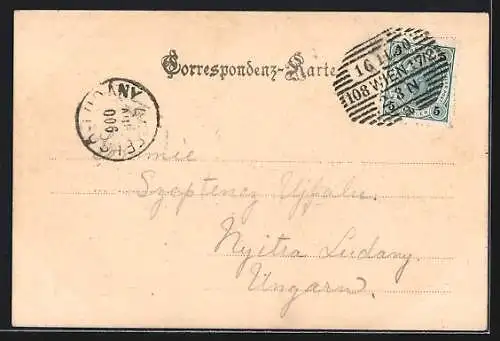 Correspondenz-Karte
16 IV 00
108 WIEN 17/2
8 N
5 5
900
Szeptencz Ujfalu.
Nyitra Ludany.
Ungarn.